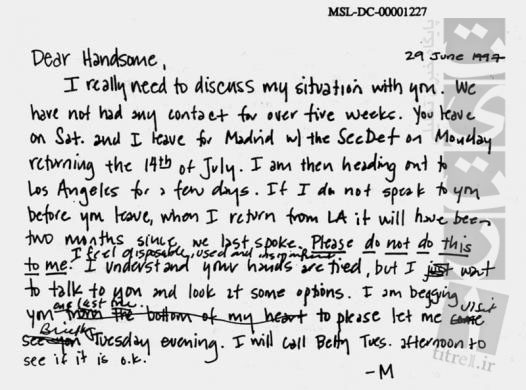 MSL-DC-00001227
Dear Handsome,
29 June 1997
I really need to discuss my situation with you. We
have not had any contact for over five weeks. You leave
on Sat. and I leave for Madrid w/ the SecDef on Monday
returning the 14th of July. I am then heading out to
Los Angeles for a few days. If I do not speak to you
before you leave, when I return from LA it will have been
two months since we last spoke. Please do not do this
I feel disposable, used and insignificant.
to me. I understand your hands are tied, but I just want
to talk to you and look at some options. I am begging
one last time.
you from the bottom of my heart to please let me come visit
Briefly
see you Tuesday evening. I will call Betty Tues. afternoon to
see if it is o.k.
-M
titrelI.ir